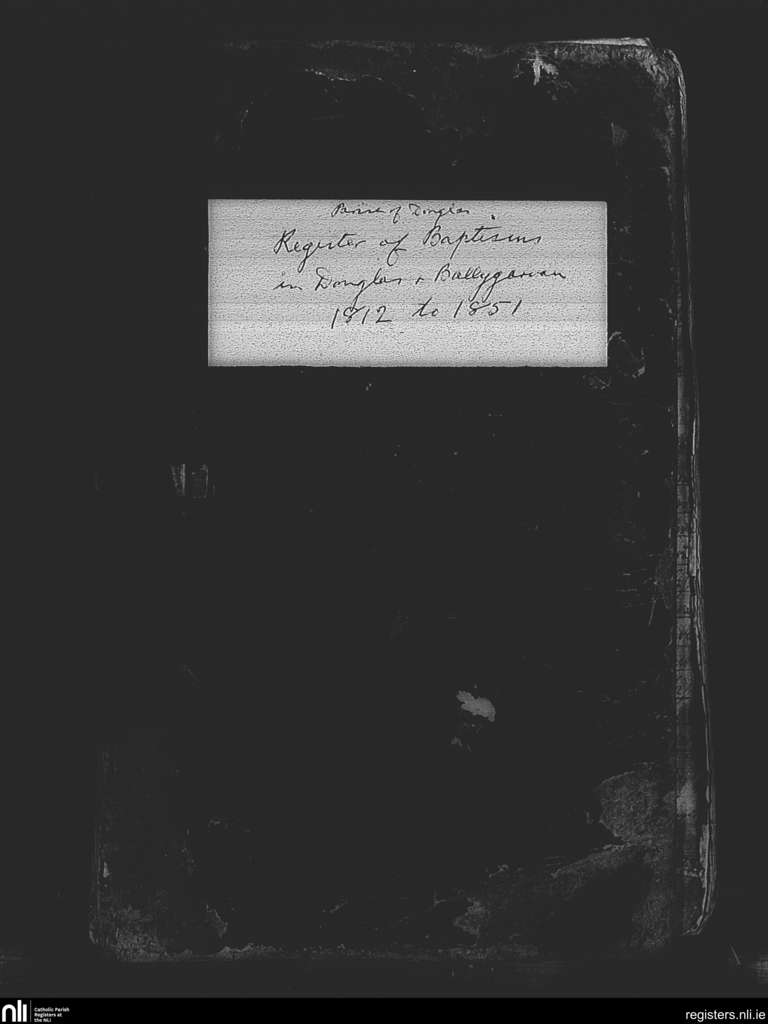 Parish of Douglas.
Register of Baptisms
in Douglas & Ballygarvan
1812 to 1851
nli
Catholic Parish
Registers at
the NLI
registers.nli.ie